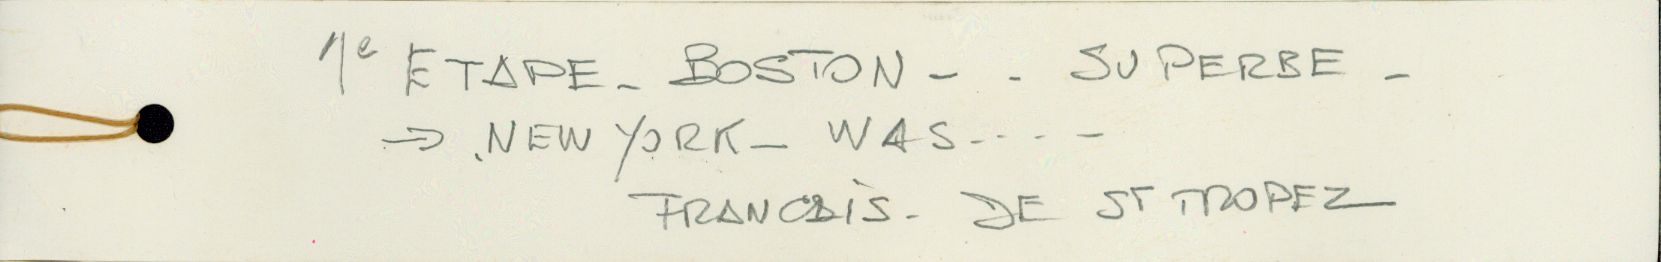 1e ETAPE - BOSTON - - SUPERBE -
→ NEW YORK - WAS - - - -
FRANCOIS - DE ST TROPEZ